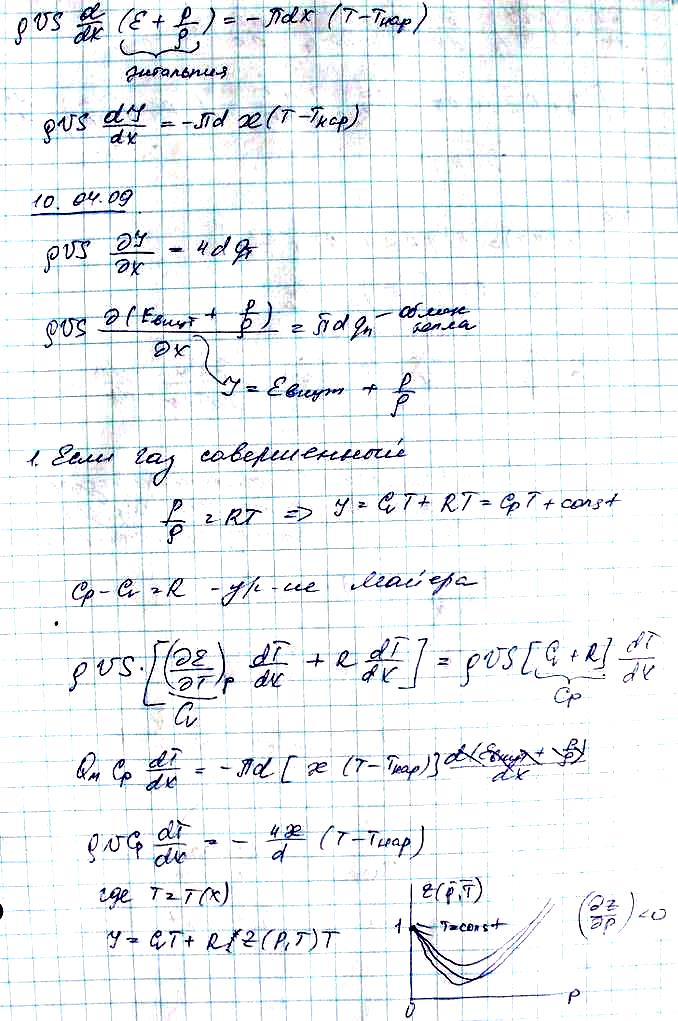 ρυS d/dx (ε + p/ρ) = -πdx (T-Tнар)
энтальпия
ρυS dJ/dx = -πd æ (T-Tнар)
10. 04.09
ρυS ∂J/∂x = 4d qT
ρυS ∂(Eвнут + p/ρ)/∂x = πd qп - обмен тепла
J = Eвнут + p/ρ
1. Если газ совершенный
p/ρ = RT => J = CvT + RT = CpT + const
Cp - Cv = R - ур-ие Майера
ρυS·[(∂ε/∂T)p dT/dx + R dT/dx] = ρυS [Cv + R] dT/dx
Cv Cp
Qм Cp dT/dx = -πd [ æ (T-Tнар)] d(Eвнут + p/ρ)/dx
ρυCp dT/dx = - 4æ/d (T-Tнар)
где T=T(x) Z(p̄,T̄)
1 T=const (∂z/∂p) <0
J = CvT + R Z(P,T) T
0 P